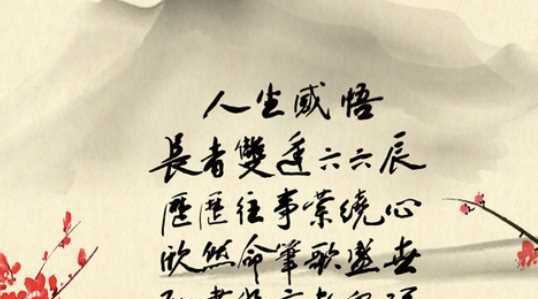 人生感悟
長者雙逢六六辰
歷歷往事縈繞心
欣然命筆歌盛世